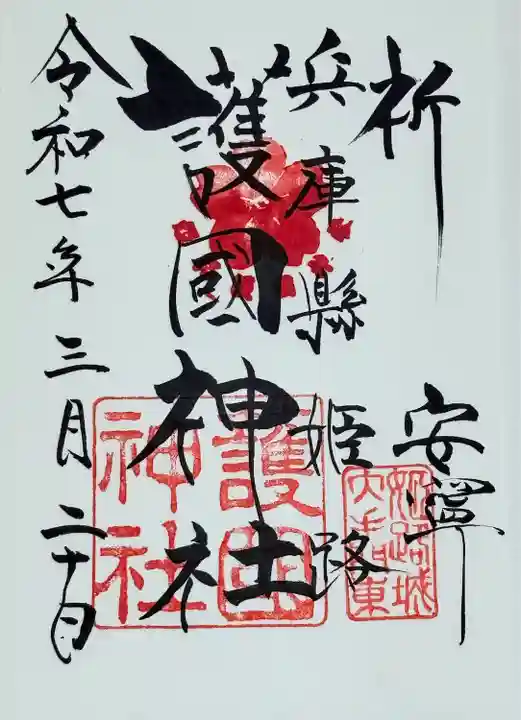 祈 安寧
兵庫縣 姫路
護國神社
令和七年三月二十日
護国神社
姫路城
大手東